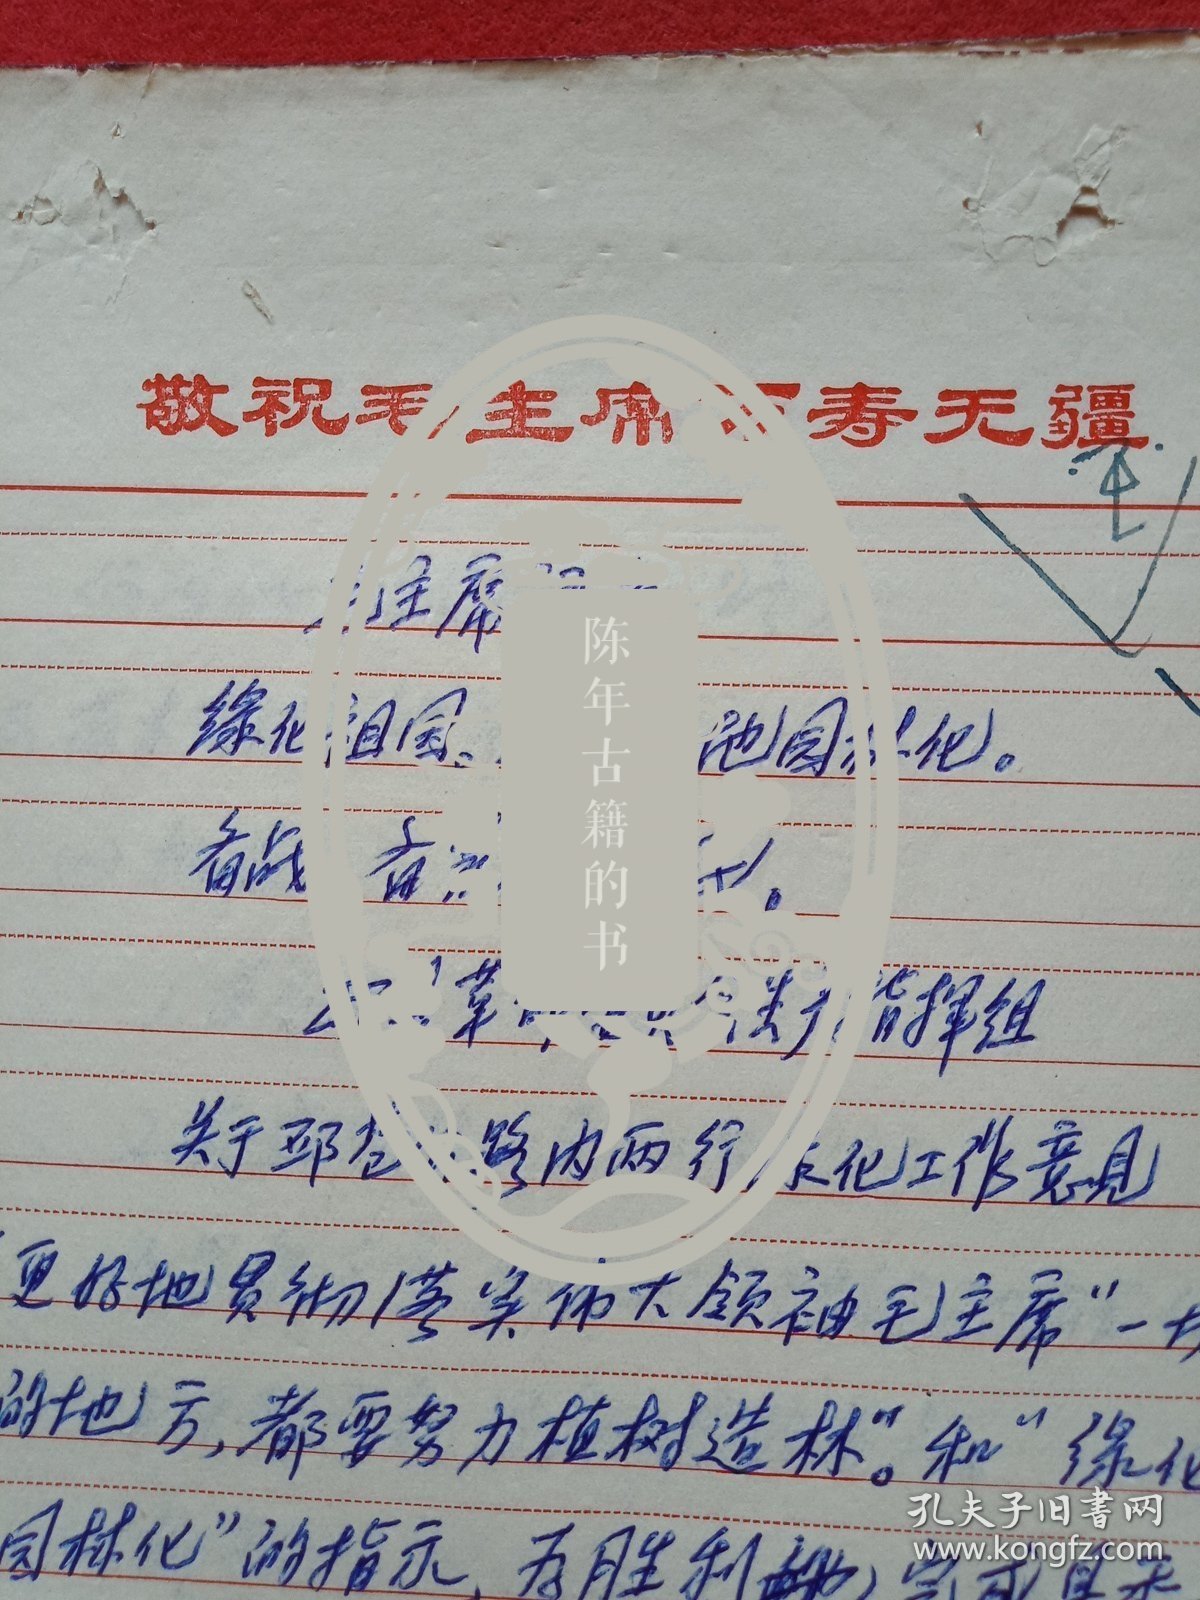 敬祝毛主席万寿无疆
主席
绿化祖国、 地园林化。
备战 备
革 指挥组
关于邳 路内两行 化工作意见
更好地贯彻落实伟大领袖毛主席"一切
的地方,都要努力植树造林"。和"绿化
园林化"的指示,为胜利地完成
陈年古籍的书
孔夫子旧书网
www.kongfz.com